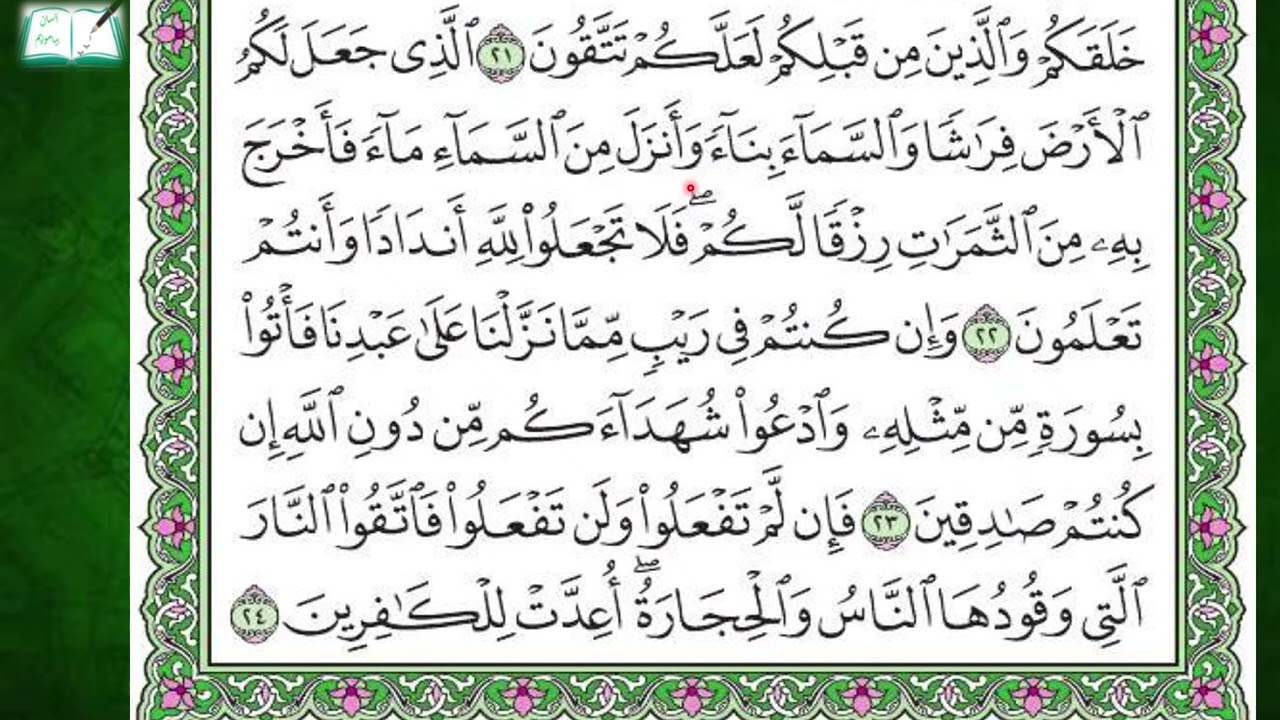 آسان بیاموزیم
خَلَقَكُمْ وَٱلَّذِينَ مِن قَبْلِكُمْ لَعَلَّكُمْ تَتَّقُونَ ٢١ ٱلَّذِى جَعَلَ لَكُمُ
ٱلْأَرْضَ فِرَٰشًا وَٱلسَّمَآءَ بِنَآءً وَأَنزَلَ مِنَ ٱلسَّمَآءِ مَآءً فَأَخْرَجَ
بِهِۦ مِنَ ٱلثَّمَرَٰتِ رِزْقًا لَّكُمْ ۖ فَلَا تَجْعَلُوا۟ لِلَّهِ أَندَادًا وَأَنتُمْ
تَعْلَمُونَ ٢٢ وَإِن كُنتُمْ فِى رَيْبٍ مِّمَّا نَزَّلْنَا عَلَىٰ عَبْدِنَا فَأْتُوا۟
بِسُورَةٍ مِّن مِّثْلِهِۦ وَٱدْعُوا۟ شُهَدَآءَكُم مِّن دُونِ ٱللَّهِ إِن
كُنتُمْ صَٰدِقِينَ ٢٣ فَإِن لَّمْ تَفْعَلُوا۟ وَلَن تَفْعَلُوا۟ فَٱتَّقُوا۟ ٱلنَّارَ
ٱلَّتِى وَقُودُهَا ٱلنَّاسُ وَٱلْحِجَارَةُ ۖ أُعِدَّتْ لِلْكَٰفِرِينَ ٢٤